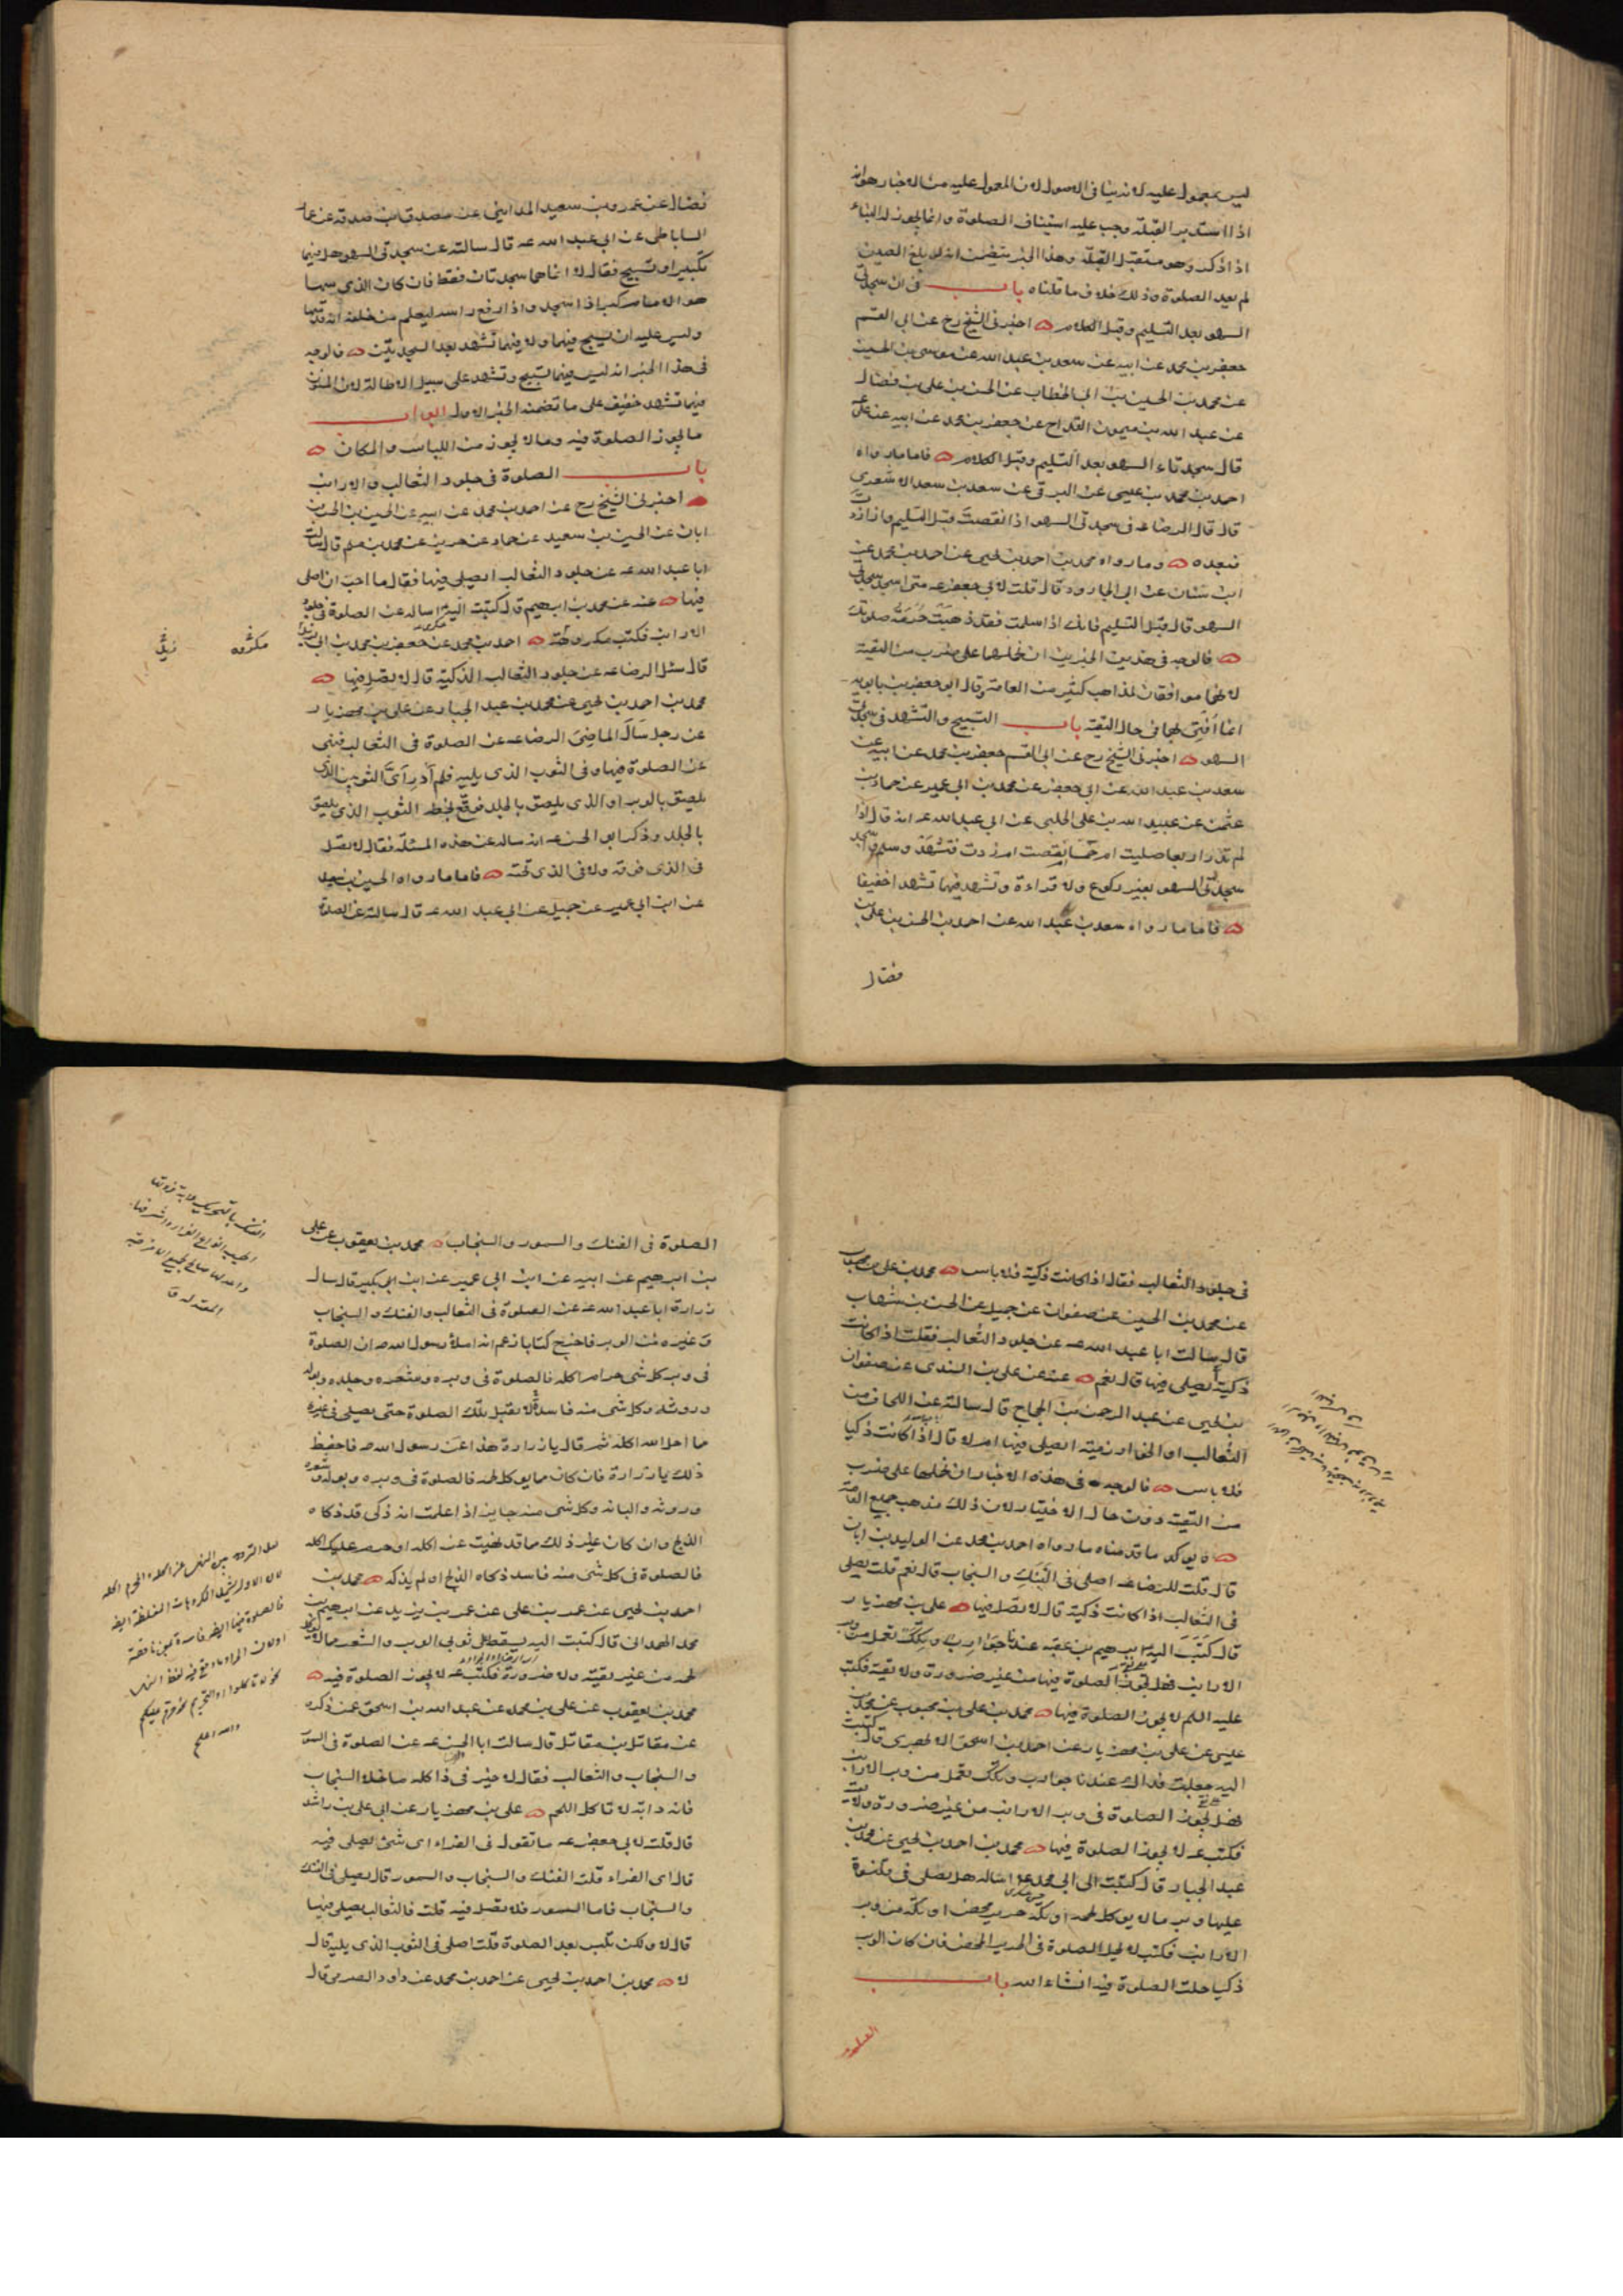 ليس بمعمول عليه لانه ينافى الاصول لان المعول عليه من الاخبار هو انه
اذا استدبر القبلة وجب عليه استيناف الصلوة وانما يجوز له البناء
اذا ذكر وهو مستقبل القبلة وهذا الخبر يتضمن انه لو بلغ الصين
لم يعد الصلوة وذلك خلاف ما قلناه باب فى ان سجدتى
السهو بعد التسليم وقبل الكلام اخبرنى الشيخ رح عن ابى القسم
جعفر بن محمد عن ابيه عن سعد بن عبد الله عن موسى بن الحسين
عن محمد بن الحسين بن ابى الخطاب عن الحسن بن على بن فضال
عن عبد الله بن ميمون القداح عن جعفر بن محمد عن ابيه عن على
قال سجدتاء السهو بعد التسليم وقبل الكلام فاما ما رواه
احمد بن محمد بن عيسى عن البرقى عن سعد بن سعد الاشعرى
قال قال الرضا عه فى سجدتى السهو اذا نقصت قبل التسليم واذا زدت
فبعده وما رواه محمد بن احمد بن يحيى عن احمد بن محمد عن
ابن سنان عن ابى الجارود قال قلت لابى جعفر عه متى اسجد سجدتى
السهو قال قبل التسليم فانك اذا سلمت فقد ذهبت حرمة صلوتك
فالوجه فى هذين الخبرين ان نحملهما على ضرب من التقية
لانهما موافقان لمذاهب كثير من العامة وقال ابو جعفر بن بابويه
انما افتى بهما فى حال التقية باب التسبيح والتشهد فى سجدتى
السهو اخبرنى الشيخ رح عن ابى القسم جعفر بن محمد عن ابيه عن
سعد بن عبد الله عن ابى جعفر عن محمد بن ابى عمير عن حماد بن
عثمن عن عبيد الله بن على الحلبى عن ابى عبد الله عه انه قال اذا
لم تدر اربعا صليت ام خمسا ام نقصت ام زدت فتشهد وسلم واسجد
سجدتى السهو بغير ركوع ولا قراءة وتشهد فيهما تشهدا خفيفا
فاما ما رواه سعد بن عبد الله عن احمد بن الحسن بن على بن
فضال
فضال عن عمرو بن سعيد المداينى عن مصدق بن صدقة عن عمار
الساباطى عن ابى عبد الله عه قال سالته عن سجدتى السهو هل فيهما
تكبيرا و تسبيح فقال لا انما هما سجدتان فقط فان كان الذى سها
هو الامام كبر اذا سجد واذا رفع راسه ليعلم من خلفه انه قد سها
وليس عليه ان يسبح فيهما ولا فيهما تشهد بعد السجدتين فالوجه
فى هذا الخبر انه ليس فيهما تسبيح وتشهد على سبيل الاطالة لان المسنون
فيهما تشهد خفيف على ما تضمنه الخبر الاول ابواب
ما يجوز الصلوة فيه وما لا يجوز من اللباس والمكان
باب الصلوة فى جلود الثعالب والارانب
اخبرنى الشيخ رح عن احمد بن محمد عن ابيه عن الحسين بن الحسن بن
ابان عن الحسين بن سعيد عن حماد عن حريز عن محمد بن مسلم قال سالت
ابا عبد الله عه عن جلود الثعالب ايصلى فيها فقال ما احب ان اصلى
فيها عنه عن محمد بن ابرهيم قال كتبت اليه اساله عن الصلوة فى جلود
الارانب فكتب مكروهة احمد بن محمد عن جعفر بن محمد بن ابى زيد
مكروهه
قال سئل الرضا عه عن جلود الثعالب الذكية قال لا تصل فيها
محمد بن احمد بن يحيى عن محمد بن عبد الجبار عن على بن مهزيار
عن رجل سال الماضى الرضا عه عن الصلوة فى الثعالب فنهى
عن الصلوة فيها وفى الثوب الذى يليه فلم ادر اى الثوبين الذى
يلصق بالوبر او الذى يلصق بالجلد فوقع بخطه الثوب الذى يلصق
بالجلد وذكر ابو الحسن عه انه ساله عن هذه المسئلة فقال لا تصل
فى الذى فوقه ولا فى الذى تحته فاما ما رواه الحسين بن سعيد
عن ابن ابى عمير عن جميل عن ابى عبد الله عه قال سالته عن الصلوة
فى جلود الثعالب فقال اذا كانت ذكية فلا باس محمد بن على بن محبوب
عن محمد بن الحسين عن صفوان عن جميل عن الحسن بن شهاب
قال سالت ابا عبد الله عه عن جلود الثعالب فقلت اذا كانت
ذكية ايصلى فيها قال نعم عنه عن على بن السندى عن صفوان
بن يحيى عن عبد الرحمن بن الحجاج قال سالته عن اللحاف من
الثعالب او الخوارزمية ايصلى فيها ام لا قال اذا كانت ذكيا
فلا باس فالوجه فى هذه الاخبار ان نحملها على ضرب
من التقية دون حال الاختيار لان ذلك مذهب جميع العامة
و يوكد ما قدمناه ما رواه احمد بن محمد عن الوليد بن ابان
قال قلت للرضا عه اصلى فى الفنك والسنجاب قال نعم قلت يصلى
فى الثعالب اذا كانت ذكية قال لا تصل فيها على بن مهزيار
قال كتب اليه ابرهيم بن عقبه عندنا جوارب وتكك تعمل من وبر
الارانب فهل تجوز الصلوة فيها من غير ضرورة ولا تقية فكتب
عليه السلم لا يجوز الصلوة فيها محمد بن على بن محبوب عن محمد بن
عيسى عن على بن مهزيار عن احمد بن اسحق الابهرى قال كتبت
اليه جعلت فداك عندنا جوارب وتكك تعمل من وبر الارانب
فهل تجوز الصلوة فى وبر الارانب من غير ضرورة ولا تقية
فكتب عه لا يجوز الصلوة فيها محمد بن احمد بن يحيى عن محمد بن
عبد الجبار قال كتبت الى ابى محمد عه اساله هل يصلى فى قلنسوة
عليها وبر ما لا يوكل لحمه او تكة حرير محض او تكة من وبر
الارانب فكتب لا يحل الصلوة فى الحرير المحض فان كان الوبر
ذكيا حلت الصلوة فيه انشاء الله باب
الصلوة
الصلوة فى الفنك والسمور والسنجاب محمد بن يعقوب عن على
بن ابرهيم عن ابيه عن ابن ابى عمير عن ابن ابى بكير قال سال
زرارة ابا عبد الله عه عن الصلوة فى الثعالب والفنك والسنجاب
وغيره من الوبر فاخرج كتابا زعم انه املاء رسول الله ص ان الصلوة
فى وبر كل شى حرام اكله فالصلوة فى وبره وشعره وجلده وبوله
وروثه وكل شى منه فاسدة لا تقبل تلك الصلوة حتى يصلى فى غيره
مما احل الله اكله ثم قال يا زرارة هذا عن رسول الله ص فاحفظ
ذلك يا زرارة فان كان مما يوكل لحمه فالصلوة فى وبره وبوله وشعره
وروثه والبانه وكل شى منه جايز اذا علمت انه ذكى قد ذكاه
الذبح وان كان غير ذلك مما قد نهيت عن اكله او حرم عليك اكله
فالصلوة فى كل شى منه فاسد ذكاه الذبح او لم يذكه محمد بن
احمد بن يحيى عن عمر بن على عن عمر بن يزيد عن ابرهيم بن
محمد الهمدانى قال كتبت اليه يسقط على ثوبى الوبر والشعر مما لا يوكل
لحمه من غير تقية ولا ضرورة فكتب عه لا يجوز الصلوة فيه
محمد بن يعقوب عن على بن محمد عن عبد الله بن اسحق عمن ذكره
عن مقاتل بن مقاتل قال سالت ابا الحسن عه عن الصلوة فى السمور
والسنجاب والثعالب فقال لا خير فى ذا كله ما خلا السنجاب
فانه دابة لا تاكل اللحم على بن مهزيار عن ابى على بن راشد
قال قلت لابى جعفر عه ما تقول فى الفراء اى شئ يصلى فيه
قال اى الفراء قلت الفنك والسنجاب والسمور قال يصلى فى الفنك
والسنجاب فاما السمور فلا تصل فيه قلت فالثعالب يصلى فيها
قال لا ولكن تلبس بعد الصلوة قلت اصلى فى الثوب الذى يليه قال
لا محمد بن احمد بن يحيى عن احمد بن محمد عن داود الصرمى قال